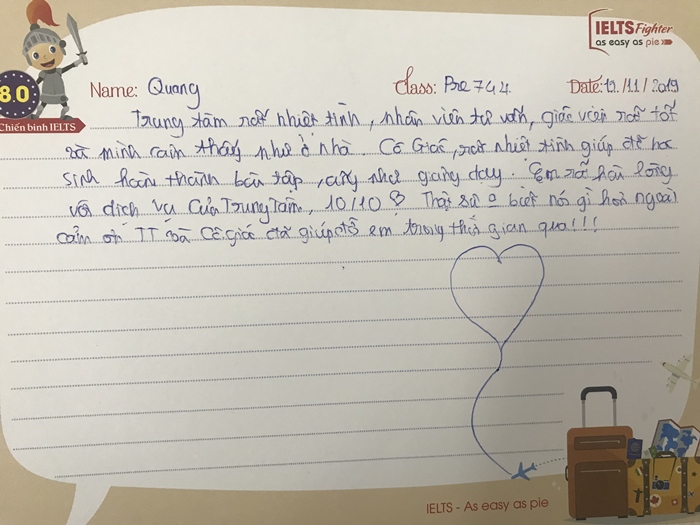 IELTS Fighter
as easy as pie
8.0
Chiến binh IELTS
Name: Quang
Class: Pre 744
Date: 12/11/2019
Trung tâm rất nhiệt tình, nhân viên tư vấn, giác viên rất tốt
và mình cảm thấy như ở nhà. Cô Giác, rất nhiệt tình giúp đỡ học
sinh hoàn thành bài tập, cũng như giảng dạy. Em rất hài lòng
với dịch vụ của Trung Tâm, 10/10 Thật sự o biết nói gì hơn ngoài
cảm ơn TT và Cô giác đã giúp đỡ em trong thời gian qua!!!
IELTS - As easy as pie